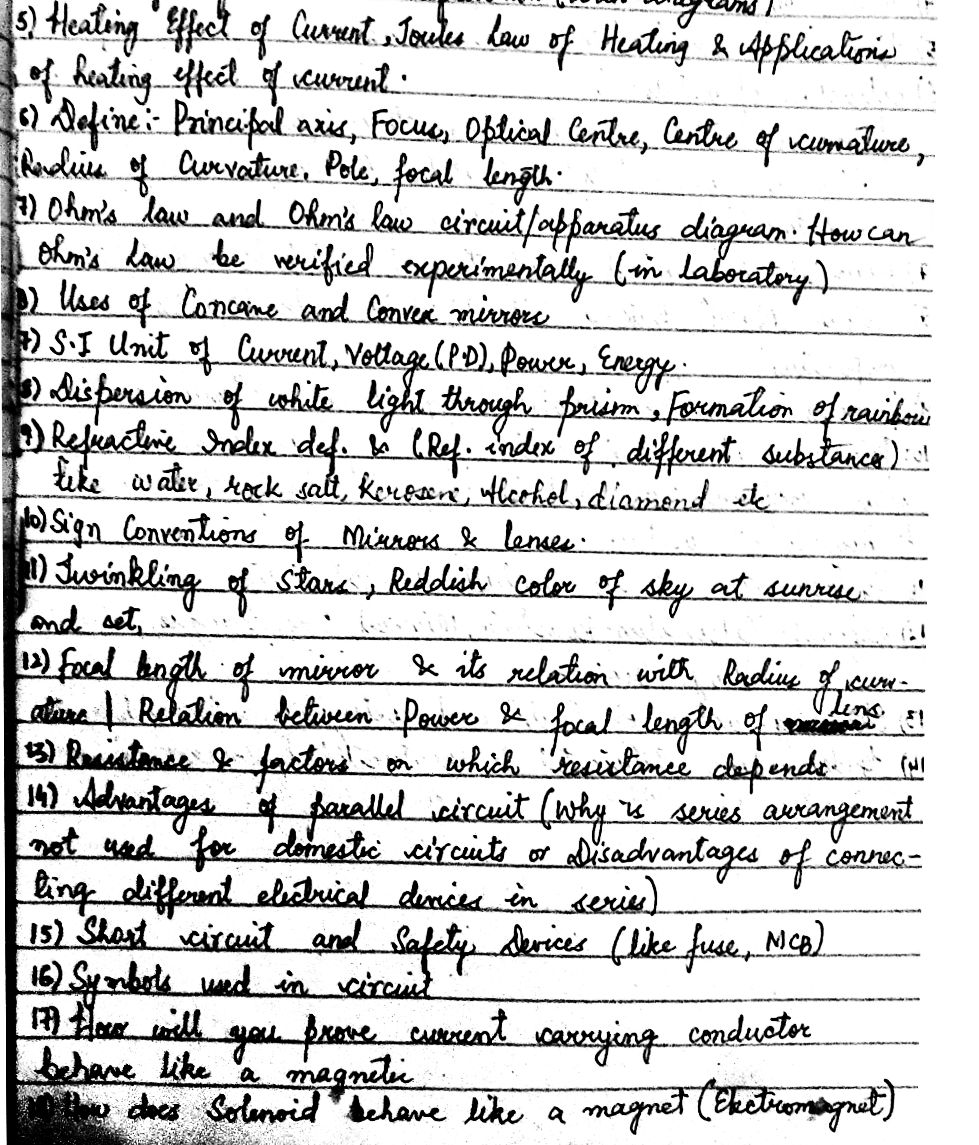 (with diagrams)
5) Heating Effect of Current, Joules Law of Heating & Applications
of heating effect of current.
6) Define:- Principal axis, Focus, Optical Centre, Centre of curvature,
Radius of Curvature, Pole, focal length.
7) Ohm's law and Ohm's law circuit/apparatus diagram. How can
Ohm's Law be verified experimentally (in laboratory)
8) Uses of Concave and Convex mirrors
7) S.I Unit of Current, Voltage (P.D), Power, Energy.
8) Dispersion of white light through prism, Formation of rainbow
9) Refractive Index def. & (Ref. index of different substances)
like water, rock salt, Kerosene, Alcohol, diamond etc
10) Sign Conventions of Mirrors & lenses.
11) Twinkling of Stars, Reddish color of sky at sunrise
and set,
12) Focal length of mirror & its relation with Radius of curv-
ature | Relation between Power & focal length of lens
13) Resistance & factors on which resistance depends.
14) Advantages of parallel circuit (Why is series arrangement
not used for domestic circuits or Disadvantages of connec-
ting different electrical devices in series)
15) Short circuit and Safety Devices (like fuse, MCB)
16) Symbols used in circuit
17) How will you prove current carrying conductor
behave like a magnetic
How does Solenoid behave like a magnet (Electromagnet)